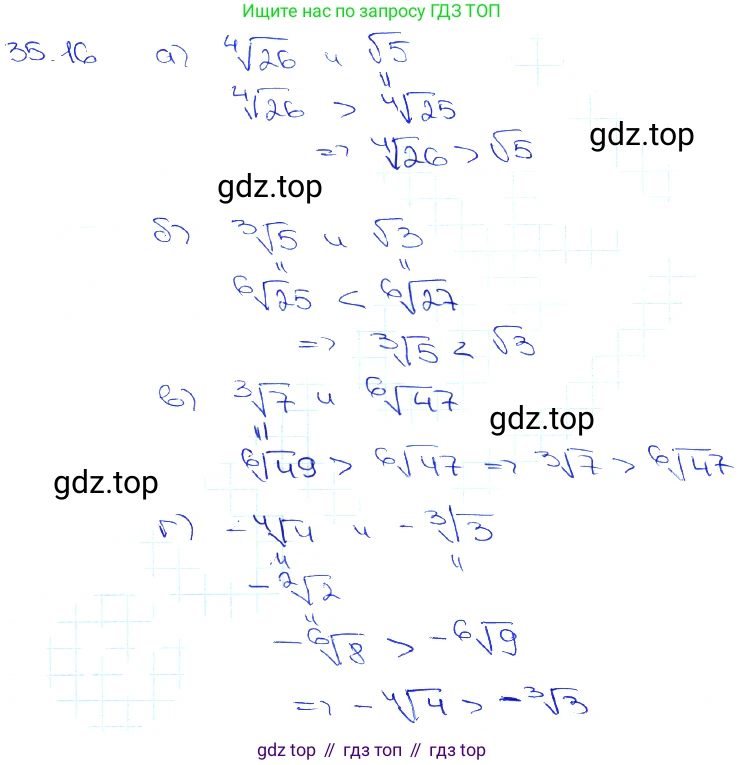 Ищите нас по запросу ГДЗ ТОП
35.16 а) ⁴√26 и √5
"
⁴√26 > ⁴√25
gdz.top
=> ⁴√26 > √5
gdz.top
б) ³√5 и √3
" "
⁶√25 < ⁶√27
=> ³√5 < √3
в) ³√7 и ⁶√47
gdz.top
"
⁶√49 > ⁶√47 => ³√7 > ⁶√47
gdz.top
г) -⁴√4 и -³√3
" "
-²√2
"
-⁶√8 > -⁶√9
=> -⁴√4 > -³√3
gdz top // гдз топ // gdz top